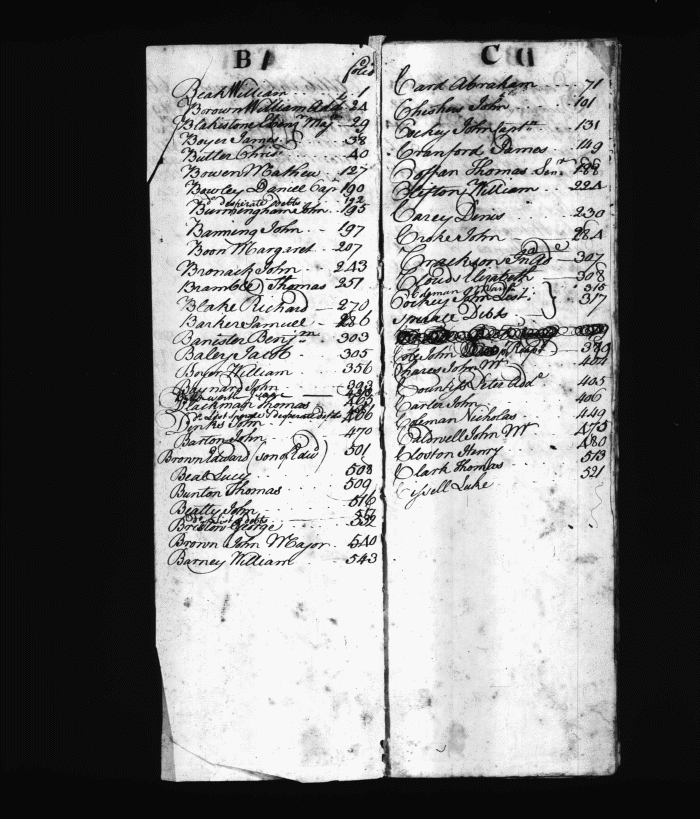 B
folio
Beak William 1
Brown William Add 24
Blakistone Benj Maj 29
Boyer James 38
Butler Chris 40
Bowen Mathew 127
Bowley Daniel Cap 190
desperate Debts 192
Burmingham John 195
Banning John 197
Boon Margaret 207
Bronack John 243
Bramble Thomas 251
Blake Richard 270
Barker Samuel 286
Banister Benjm 303
Baley Jacob 305
Boyer William 356
Baynard John 393
Blackman Thomas
John 466
Barton John 470
Brown Edward son of Edwd 501
Beal Lucy 508
Bunton Thomas 509
Beatly John 516
list of debts 517
Bristow George 532
Brown John Major 540
Barney William 543
C
Card Abraham 71
Cheshow John 191
Cockey John Capt 131
Cranford James 149
Coffan Thomas Senr 188
Clifton William 224
Carey Denis 230
Croke John 284
307
Clouds Elizabeth 308
315
Cockey John List 317
sperate Debts
Cole John 389
Chares John Mr 404
Peter Add 405
Carter John 406
Codeman Nicholas 449
Caldwell John Mr 475
Closton Henry 480
Clark Thomas 513
Cissell Luke 521